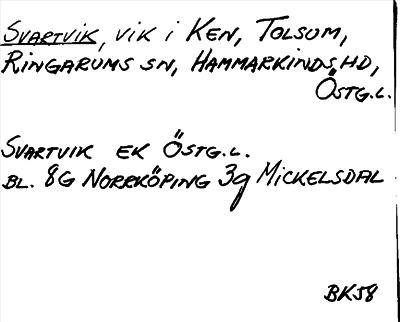 Svartvik, vik i Ken, Tolsum,
Ringarums sn, Hammarkinds hd,
Östg.l.
Svartvik ek Östg.l.
bl. 8G Norrköping 3g Mickelsdal
BK58